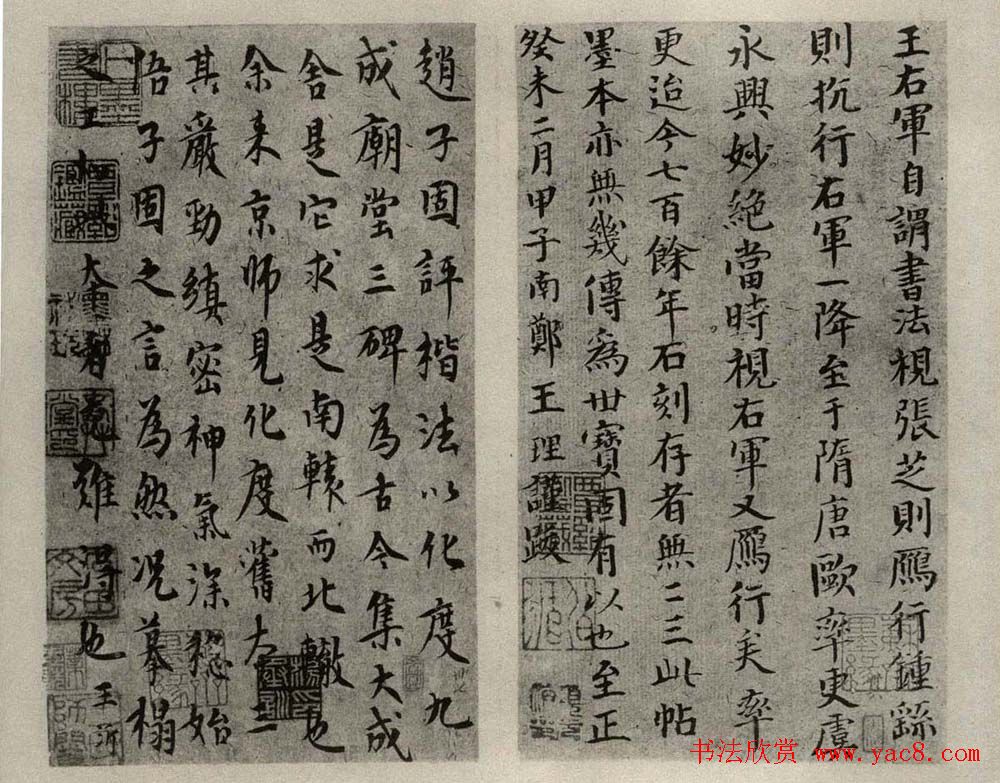 王右軍自謂書法視張芝則鴈行鍾繇
則抗行右軍一降至于隋唐歐率更虞
永興妙絶當時視右軍又鴈行矣率
更迨今七百餘年石刻存者無二三此帖
墨本亦無幾傳爲世寶固有以也至正
癸未二月甲子南鄭王理謹跋
趙子固評楷法以化度九
成廟堂三碑為古今集大成
舍是它求是南轅而北轍也
余来京師見化度舊本二三
其嚴勁縝密神氣深穏始
悟子固之言為然况摹榻
之工 大者 雖得也 王沂
书法欣赏 www.yac8.com